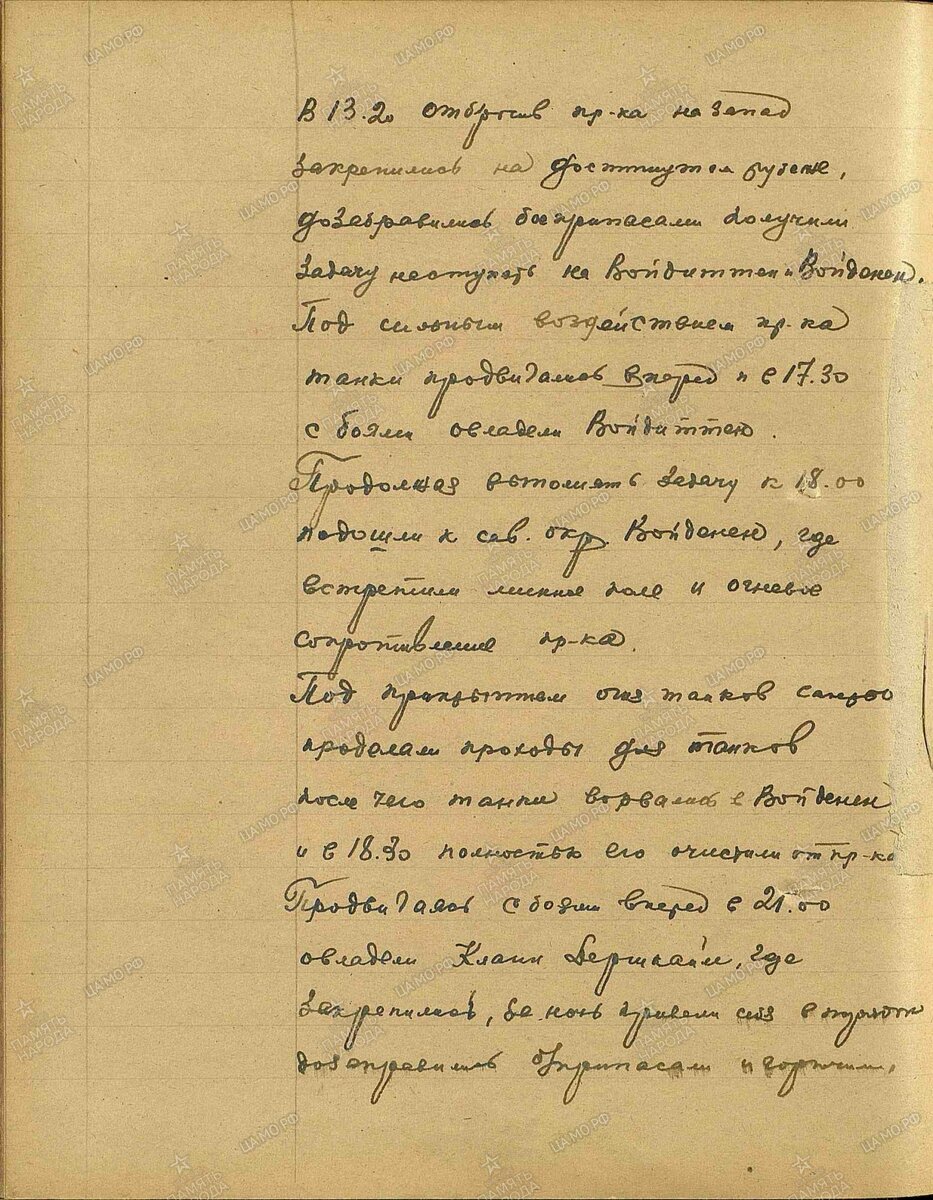 В 13.20 отбросив пр-ка на запад
закрепились на достигнутом рубеже,
дозабравились боеприпасами получили
задачу наступать на Войдиттен и Войденен.
Под сильным воздействием пр-ка
танки продвигались вперед и в 17.30
с боями овладели Войдиттен.
Продолжая выполнять задачу к 18.00
подошли к сев. окр. Войденен, где
встретили минное поле и огневое
сопротивление пр-ка.
Под прикрытием огня танков саперы
проделали проходы для танков
после чего танки ворвались в Войденен
и в 18.30 полностью его очистили от пр-ка
Продвигаясь с боями вперед в 21.00
овладели Клайн Дершкайм, где
закрепились, за ночь привели себя в порядок
дозаправились б/припасами и горючим.
ПАМЯТЬ НАРОДА
ЦАМО.РФ